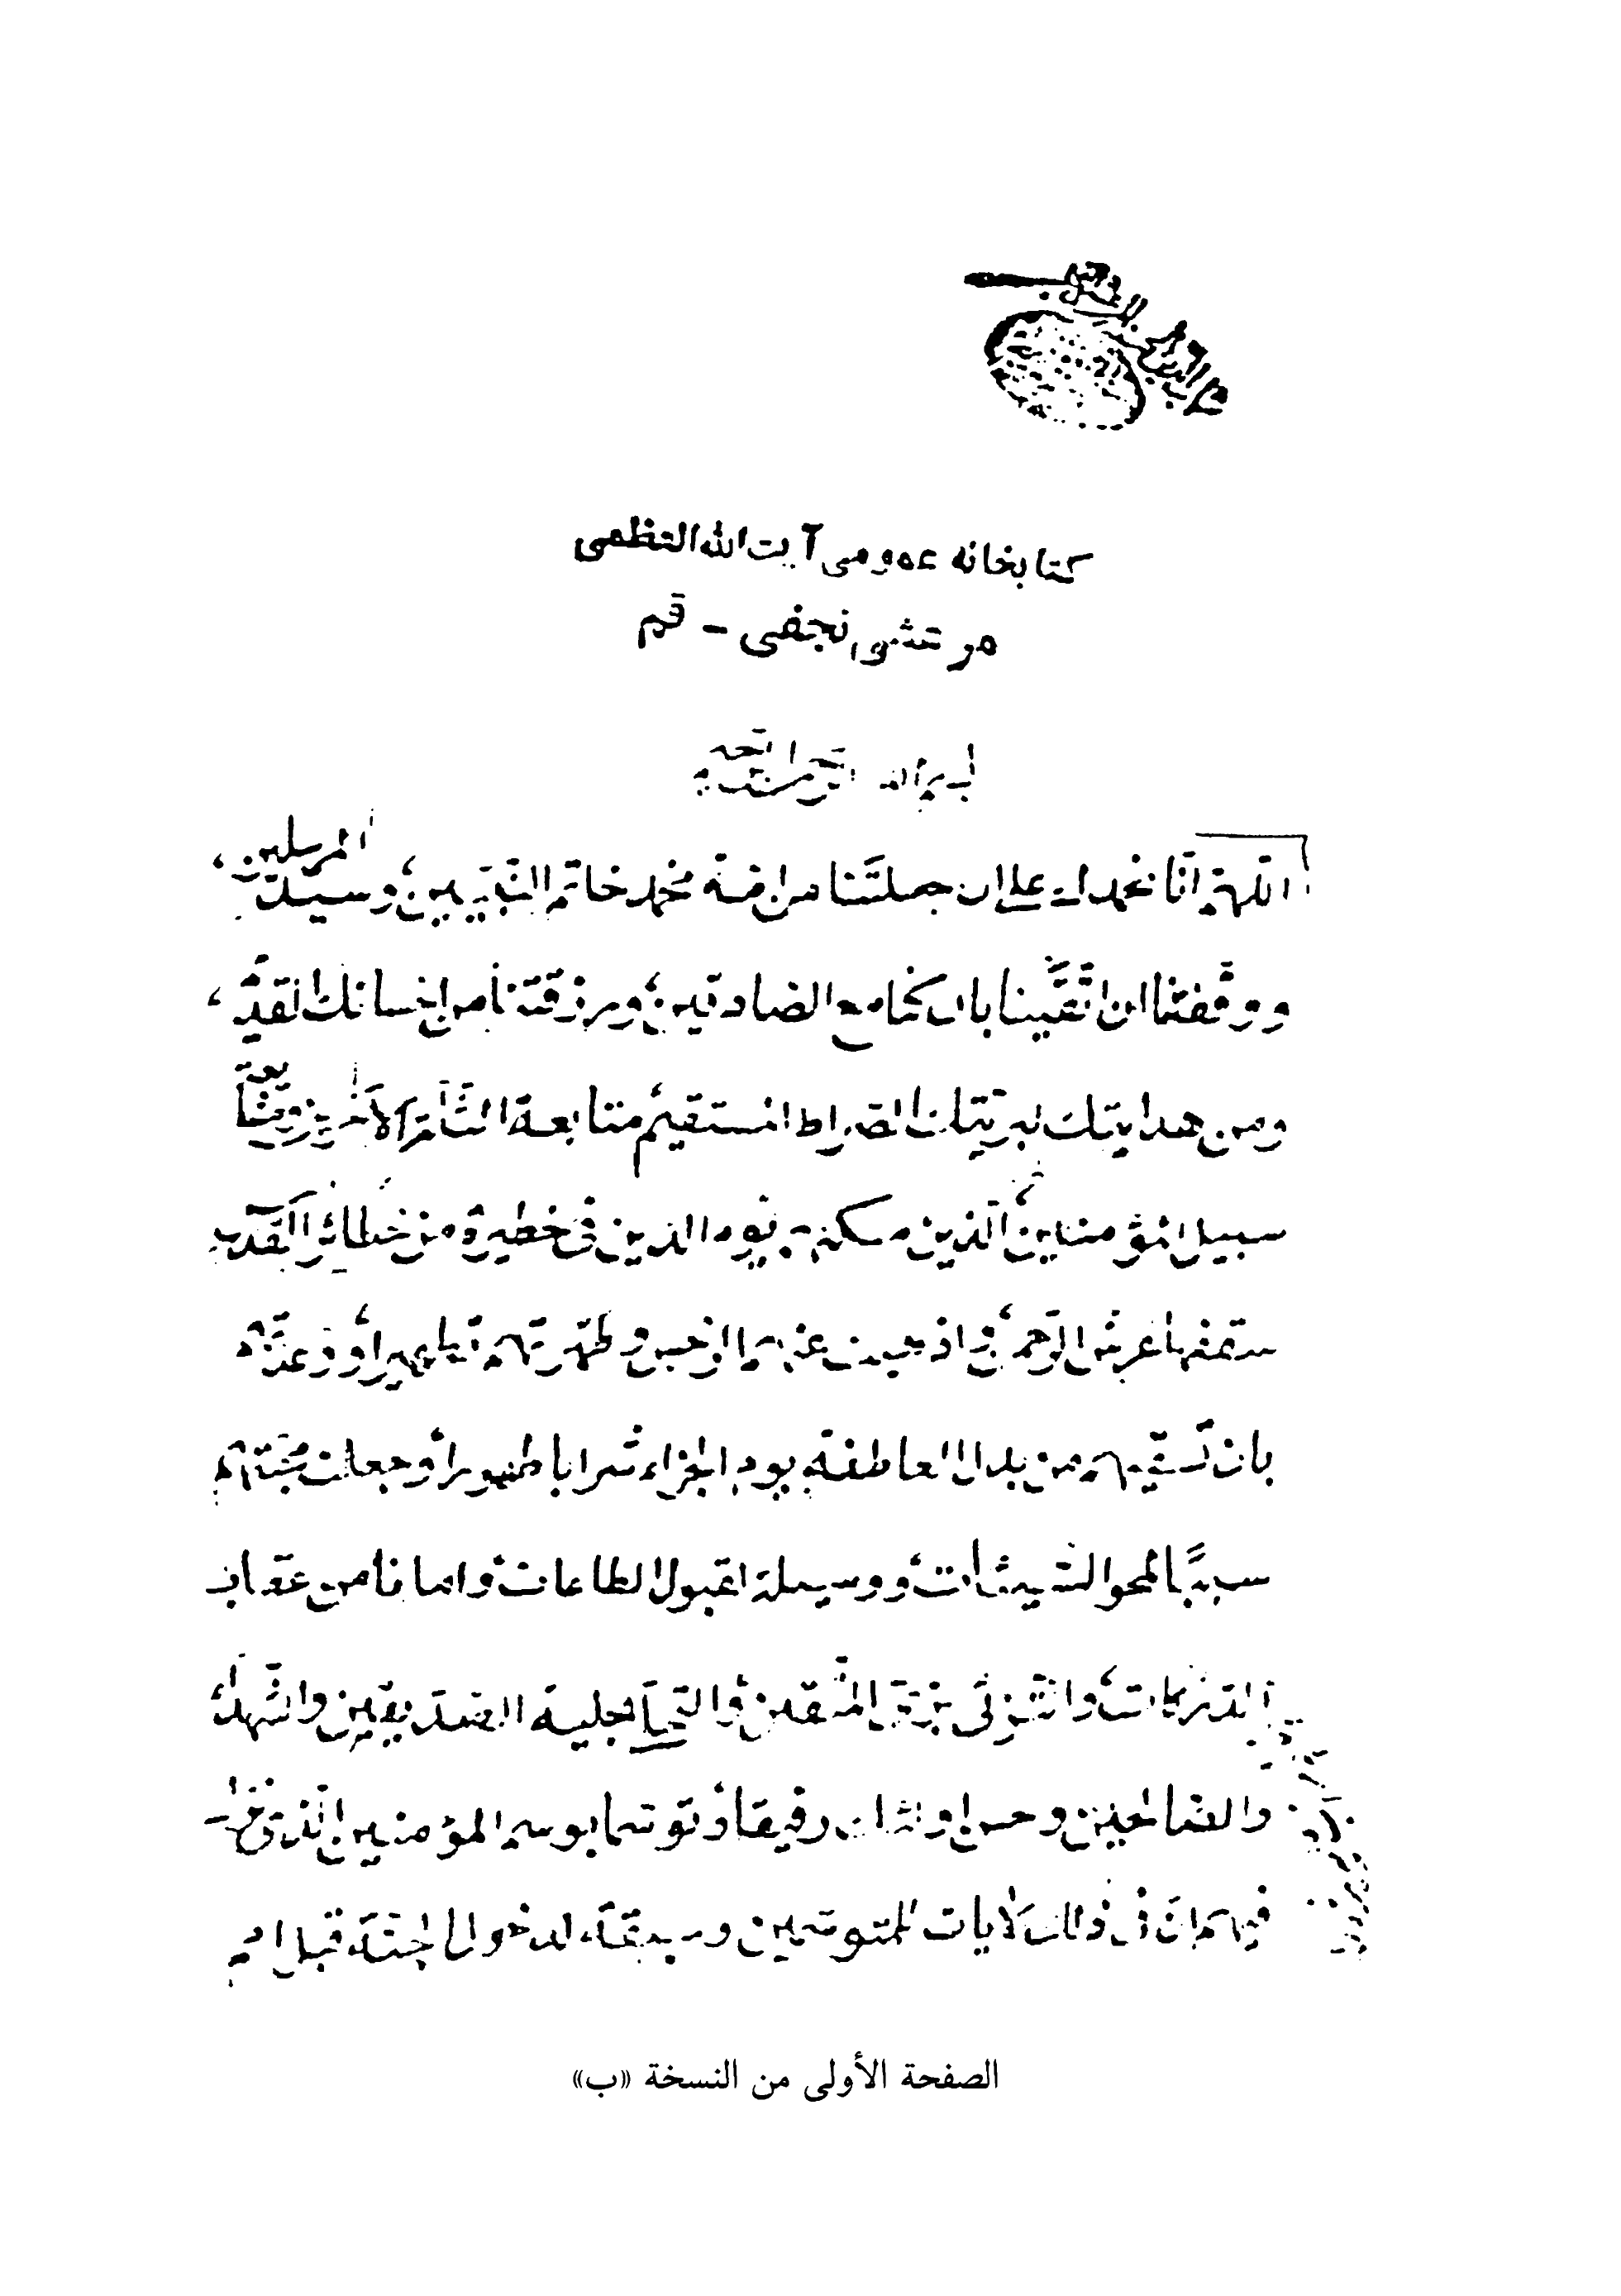 كتابخانه عمومى آيت الله العظمى
مرعشى نجفى - قم
بسم الله الرحمن الرحيم
اللهم انا نحمدك على ان جعلتنا من امة محمد خاتم النبيين وسيد المرسلين
ووفقتنا ان اتقينا بان كنا مع الصادقين ورزقتنا من احسانك القديم
ومن هدايتك لبريتك الصراط المستقيم متابعة
سبيل المؤمنين الذين يوم الدين فى حظيرة من حظائر القدس
سقفها عرش الرحمن اذهبت عنهم الرجس وطهرتهم تطهيرا ووعدتهم
بان تسقيهم من يد العاطفة يوم الجزاء شرابا طهورا وجعلت محبتهم
سببا لمحو السيئات ووسيلة لقبول الطاعات وامانا من عقاب
والتزيى بزى المتقين والتحلى بحلية الصديقين والشهداء
والصالحين وحسن اولئك رفيقا وتوسما بوسم المؤمنين الذين
فيهم ان فى ذلك لآيات للمتوسمين وسبقا لدخول الجنة قبل
الصفحة الأولى من النسخة «ب»